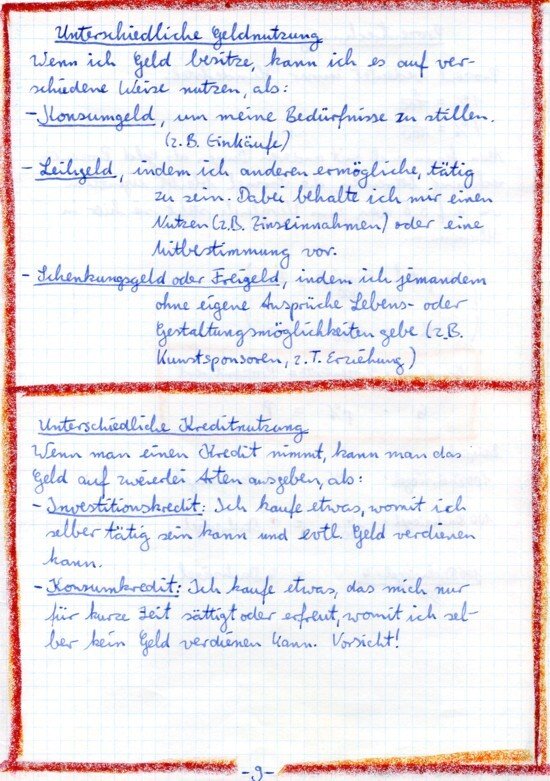 Unterschiedliche Geldnutzung
Wenn ich Geld besitze, kann ich es auf ver-
schiedene Weise nutzen, als:
- Konsumgeld, um meine Bedürfnisse zu stillen.
(z.B. Einkäufe)
- Leihgeld, indem ich anderen ermögliche, tätig
zu sein. Dabei behalte ich mir einen
Nutzen (z.B. Zinseinnahmen) oder eine
Mitbestimmung vor.
- Schenkungsgeld oder Freigeld, indem ich jemandem
ohne eigene Ansprüche Lebens- oder
Gestaltungsmöglichkeiten gebe (z.B.
Kunstsponsoren, z.T. Erziehung)
Unterschiedliche Kreditnutzung
Wenn man einen Kredit nimmt, kann man das
Geld auf zweierlei Arten ausgeben, als:
- Investitionskredit: Ich kaufe etwas, womit ich
selber tätig sein kann und evtl. Geld verdienen
kann.
- Konsumkredit: Ich kaufe etwas, das mich nur
für kurze Zeit sättigt oder erfreut, womit ich sel-
ber kein Geld verdienen kann. Vorsicht!
- 9 -